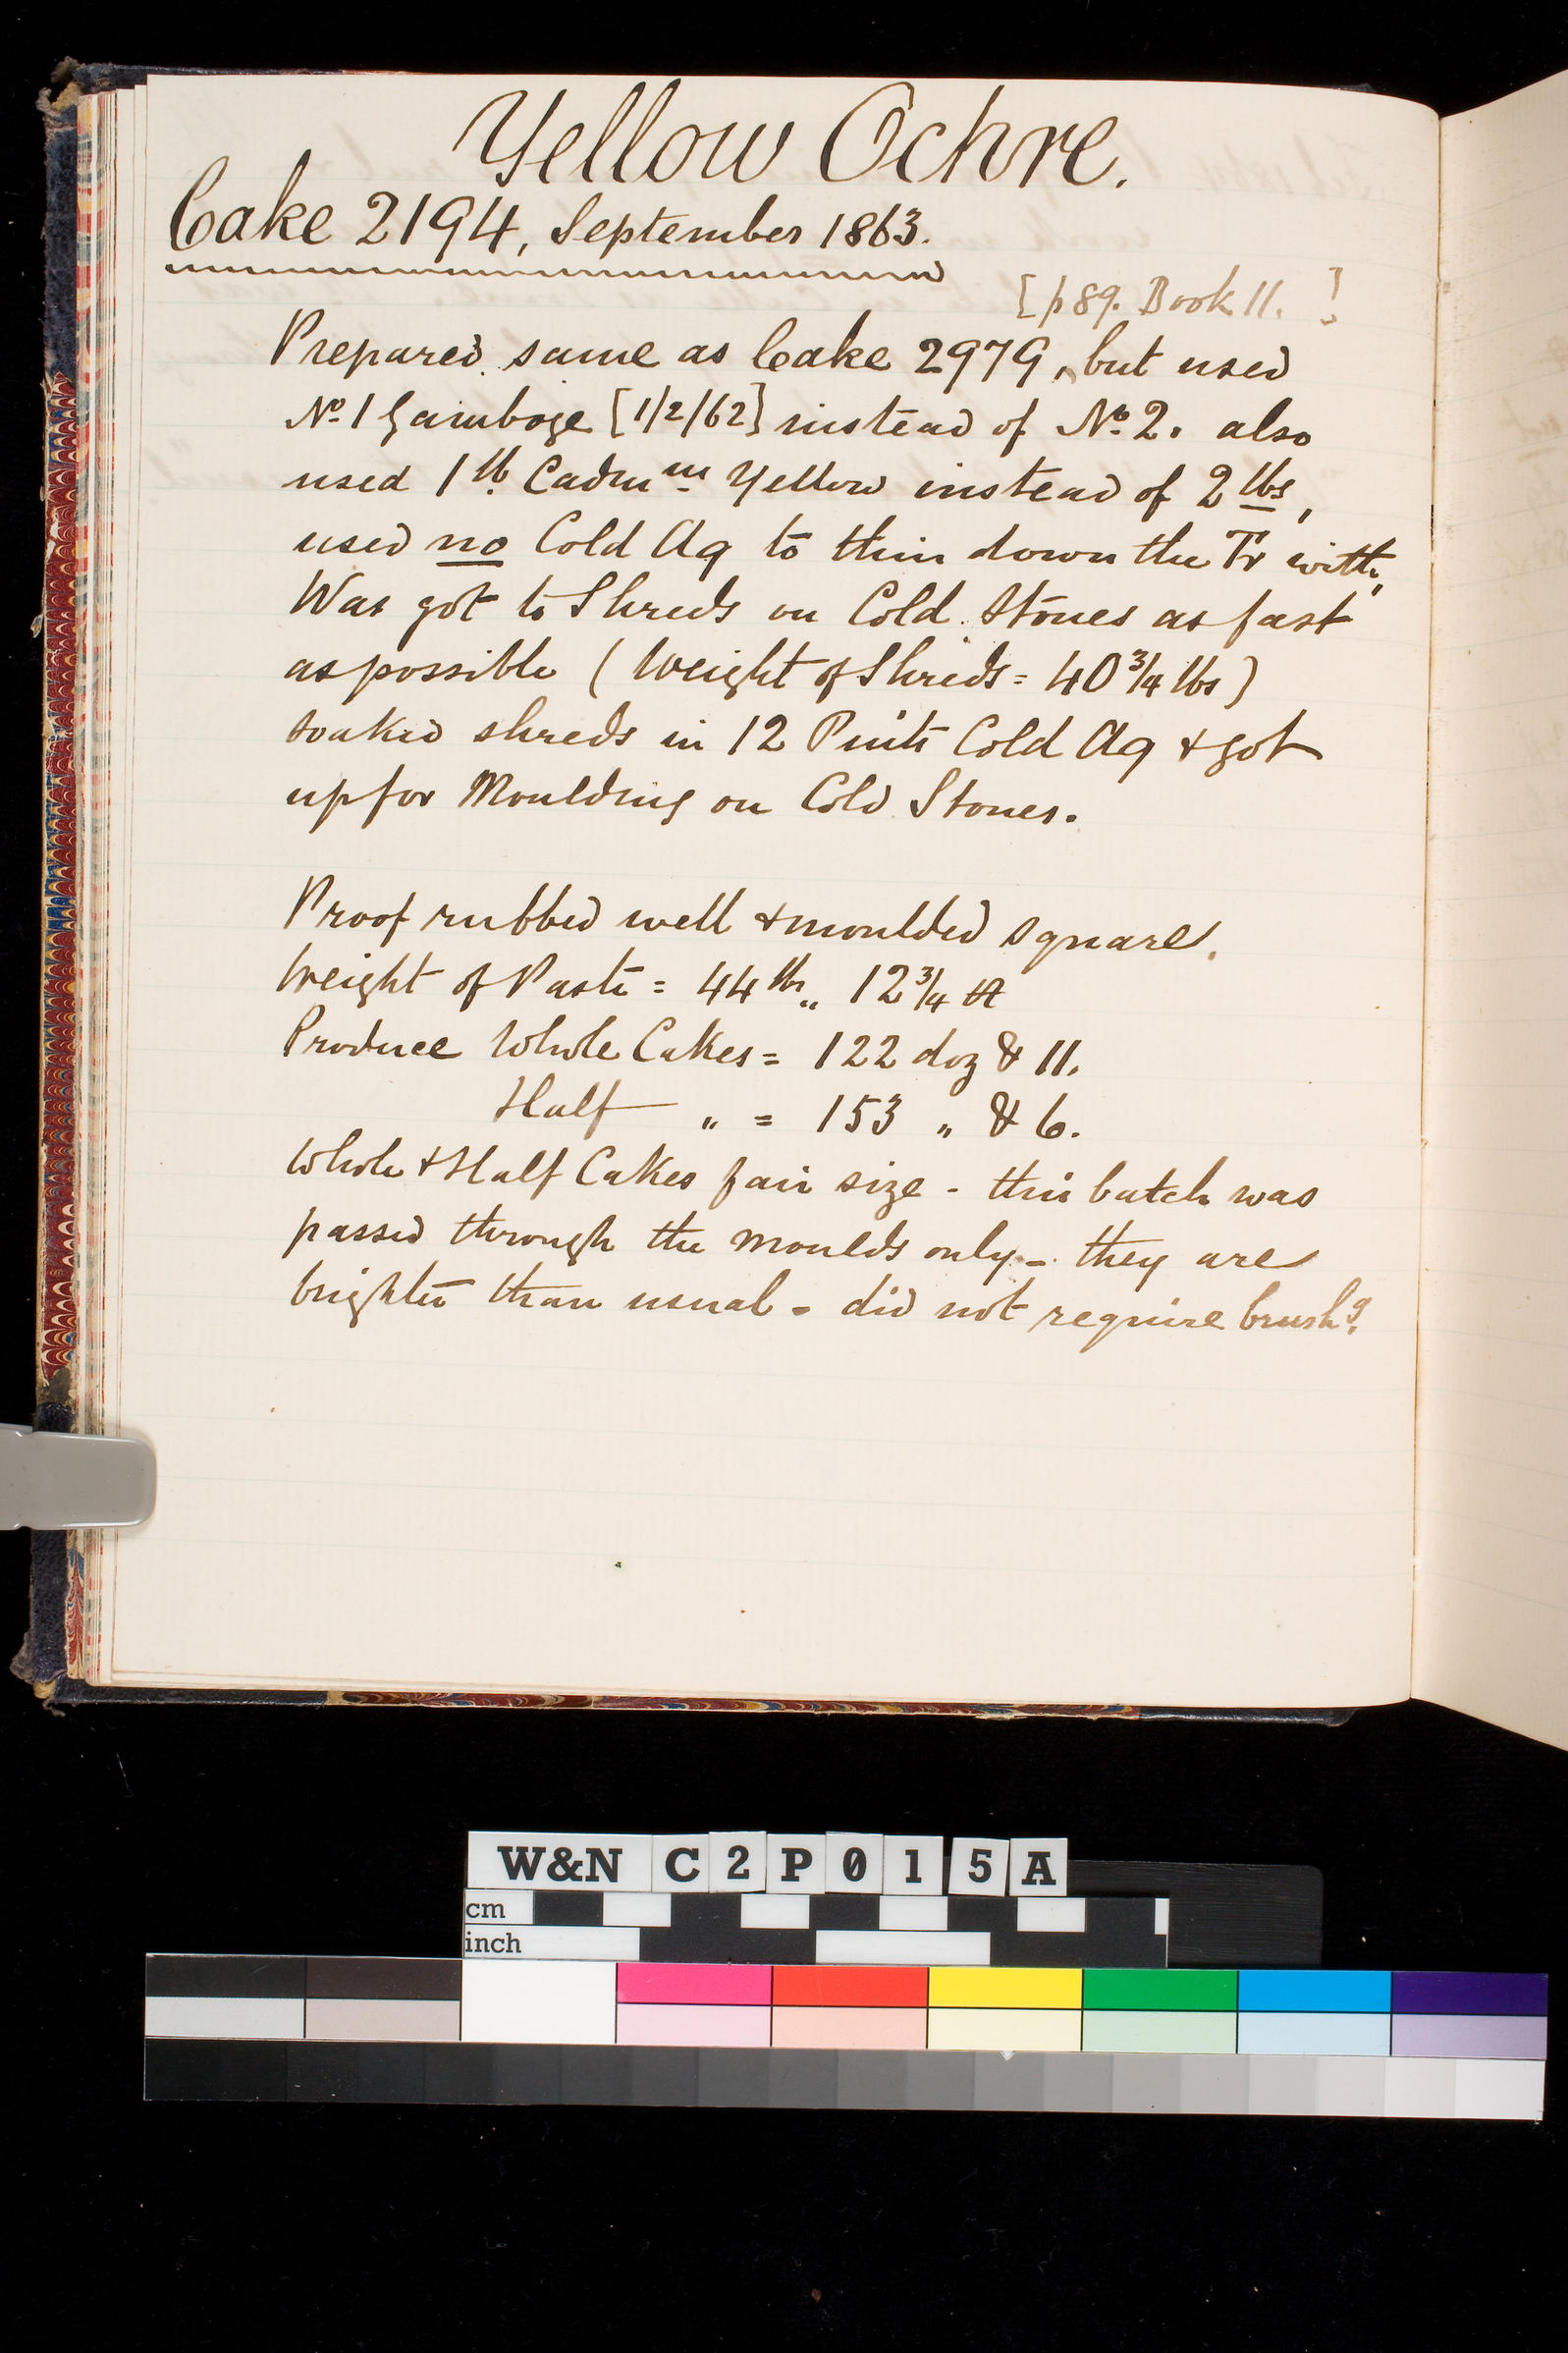 Yellow Ochre.
Cake 2194, September 1863.
[p 89. Book 11. ]
Prepared same as Cake 2979, but used
No. 1 Gamboge [1/2/62] instead of No. 2. also
used 1 lb Cadm m Yellow instead of 2 lbs,
used no Cold Aq to thin down the Tr with,
Was got to Shreds on Cold Stones as fast
as possible (Weight of Shreds = 40 3/4 lbs)
soaked shreds in 12 Pints Cold Aq & got
up for Moulding on Cold Stones.
Proof rubbed well & moulded square.
Weight of Paste = 44 lbs,, 12 3/4
Produce Whole Cakes = 122 doz & 11.
Half " = 153 " & 6.
Whole & Half Cakes fair size - this batch was
passed through the moulds only - they are
brighter than usual - did not require brushg.
W&N C2P015A
cm
inch